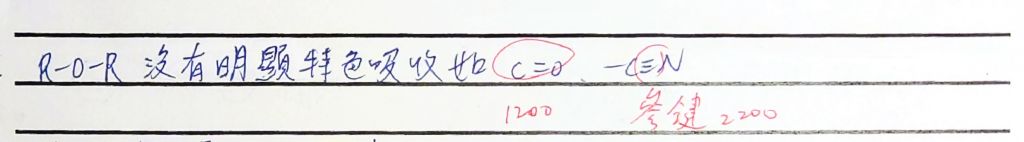 R-O-R 沒有明顯特色吸收如 C=O、-C≡N
1200 叁鍵 2200